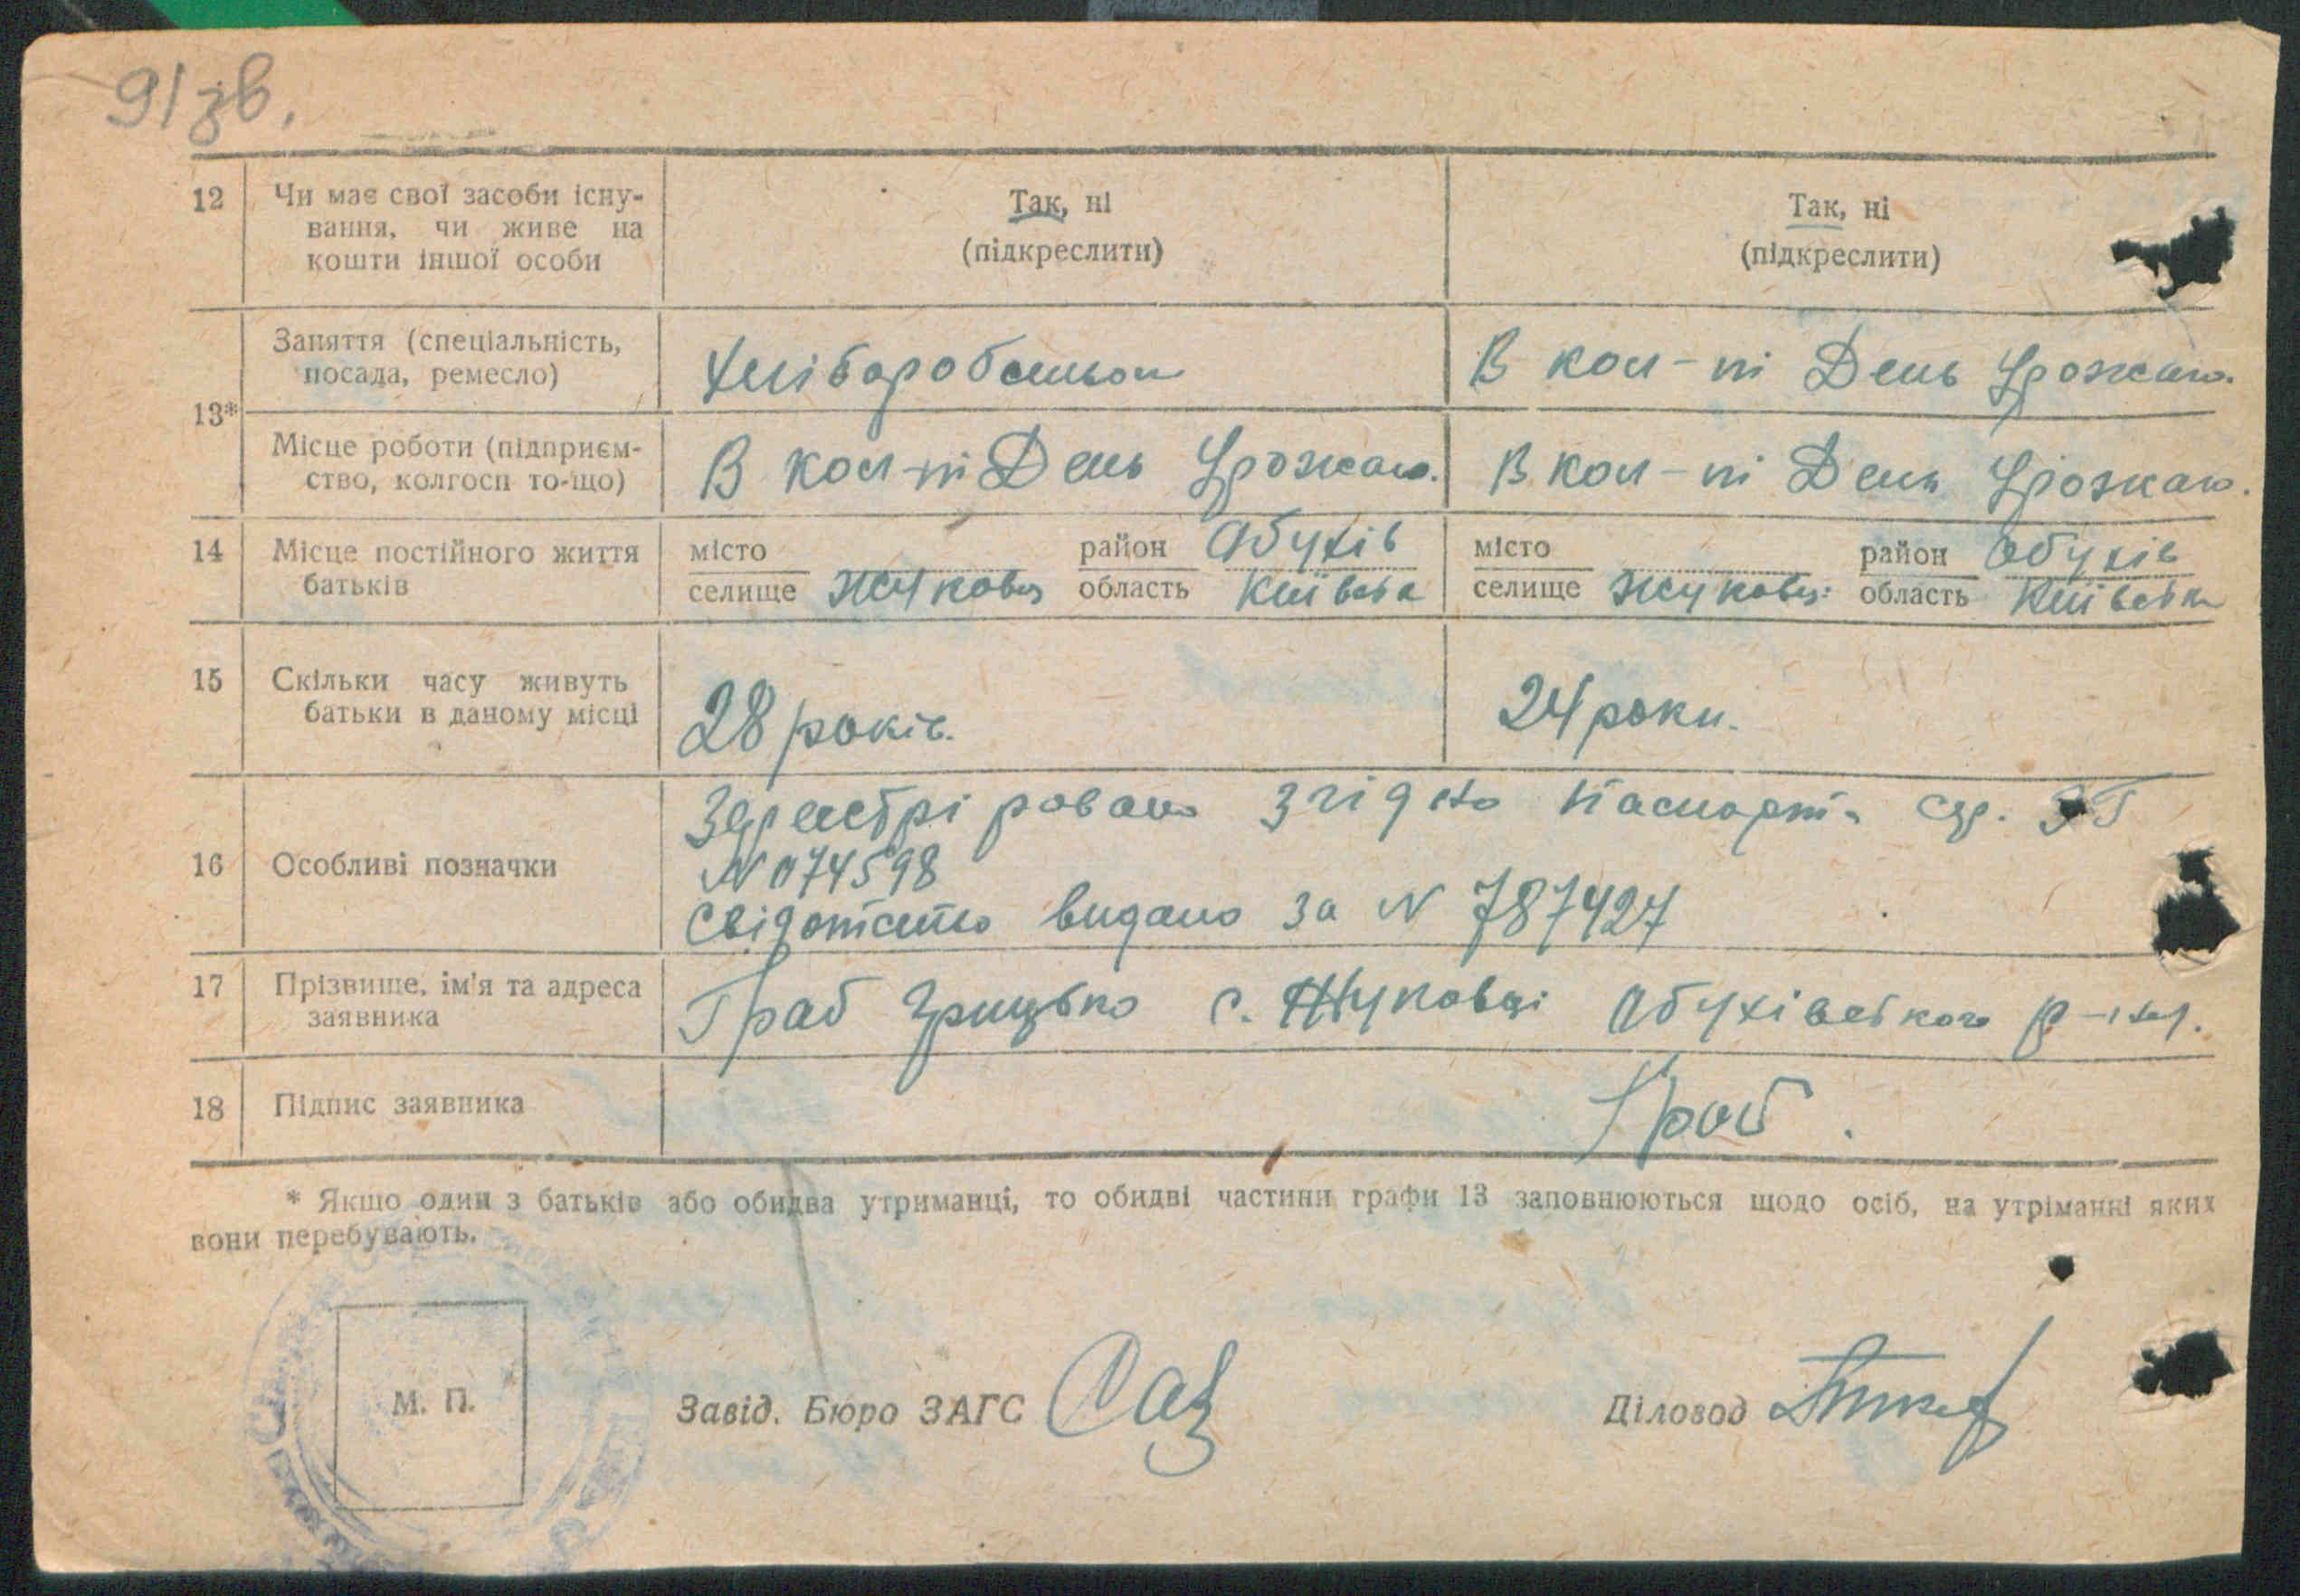 91 зв.
12 Чи має свої засоби існу- Так, ні Так, ні
вання, чи живе на (підкреслити) (підкреслити)
кошти іншої особи
13* Заняття (спеціальність, В кол-пі День Урожаю.
посада, ремесло)
Місце роботи (підприєм- В кол-пі День Урожаю. В кол-пі День Урожаю.
ство, колгосп то-що)
14 Місце постійного життя місто район Обухів місто район Обухів
батьків селище Жуковц область Київська селище Жуковц. область Київська
15 Скільки часу живуть 28 років. 24 роки.
батьки в даному місці
Зареєстріровано згідно паспорта сер.
16 Особливі позначки N 074598
Свідотство видано за N 787427
17 Прізвище, ім'я та адреса Граб Грицько с. Жуковці Обухівського р-ну.
заявника
18 Підпис заявника Граб.
* Якщо один з батьків або обидва утриманці, то обидві частини графи 13 заповнюються щодо осіб, на утріманні яких
вони перебувають.
М. П. Завід. Бюро ЗАГС Діловод